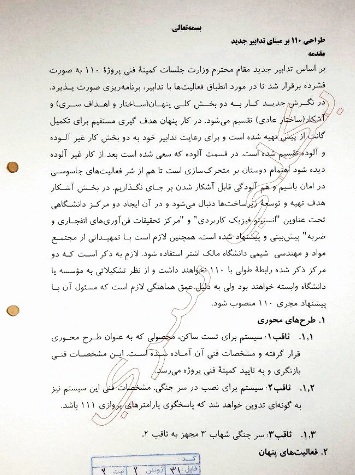 بسمه‌تعالی
طراحی ۱۱۰ بر مبنای تدابیر جدید
مقدمه
بر اساس تدابیر جدید مقام محترم وزارت جلسات کمیته فنی پروژه ۱۱۰ به صورت
فشرده برقرار شد تا در مورد انطباق فعالیت‌ها با تدابیر، برنامه‌ریزی صورت پذیرد.
در نگرش جدید کار به دو بخش کلی پنهان(ساختار و اهداف سری) و
آشکار(ساختار عادی) تقسیم می‌شود. در کار پنهان هدف گیری مستقیم برای تکمیل
گانت از پیش تهیه شده است و برای رعایت تدابیر خود به دو بخش کار غیر آلوده
و آلوده تقسیم شده است. در قسمت آلوده که سعی شده است بعد از کار غیر آلوده
دیده شود اهتمام دوستان بر متحرک‌سازی است تا هم از شر فعالیت‌های جاسوسی
در امان باسیم و هم آلودگی قابل آشکار شدن بر جای نگذاریم. در بخش آشکار
هدف تهیه و توسعه زیرساخت‌ها دنبال می‌شود و در آن ایجاد دو مرکز دانشگاهی
تحت عناوین "انستیتو فیزیک کاربردی" و "مرکز تحقیقات فن‌آوری‌های انفجاری و
ضربه" پیش‌بینی و پیشنهاد شده است. همچنین لازم است با تمهیداتی از مجتمع
مواد و مهندسی شیمی دانشگاه مالک اشتر استفاده شود. لازم به ذکر است که دو
مرکز ذکر شده رابطه طولی با ۱۱۰ نخواهند داشت و از نظر تشکیلاتی به مؤسسه یا
دانشگاه وابسته خواهند بود ولی به دلیل عمق هماهنگی لازم است که مسئول آن با
پیشنهاد مجری ۱۱۰ منصوب شود.
۱. طرح‌های محوری
۱.۱. ثاقب۱: سیستم برای تست ساکن، محصولی که به عنوان طرح محوری
قرار گرفته و مشخصات فنی آن آماده شده است. این مشخصات فنی
بازنگری و به تایید کمیته فنی پروژه می‌رسد.
۱.۲. ثاقب۲: سیستم برای نصب در سر جنگی. مشخصات فنی این سیستم نیز
به گونه‌ای تدوین خواهد شد که پاسخگوی پارامترهای پروازی ۱۱۱ باشد.
۱.۳. ثاقب۳: سر جنگی شهاب ۳ مجهز به ثاقب ۲.
۲. فعالیت‌های پنهان